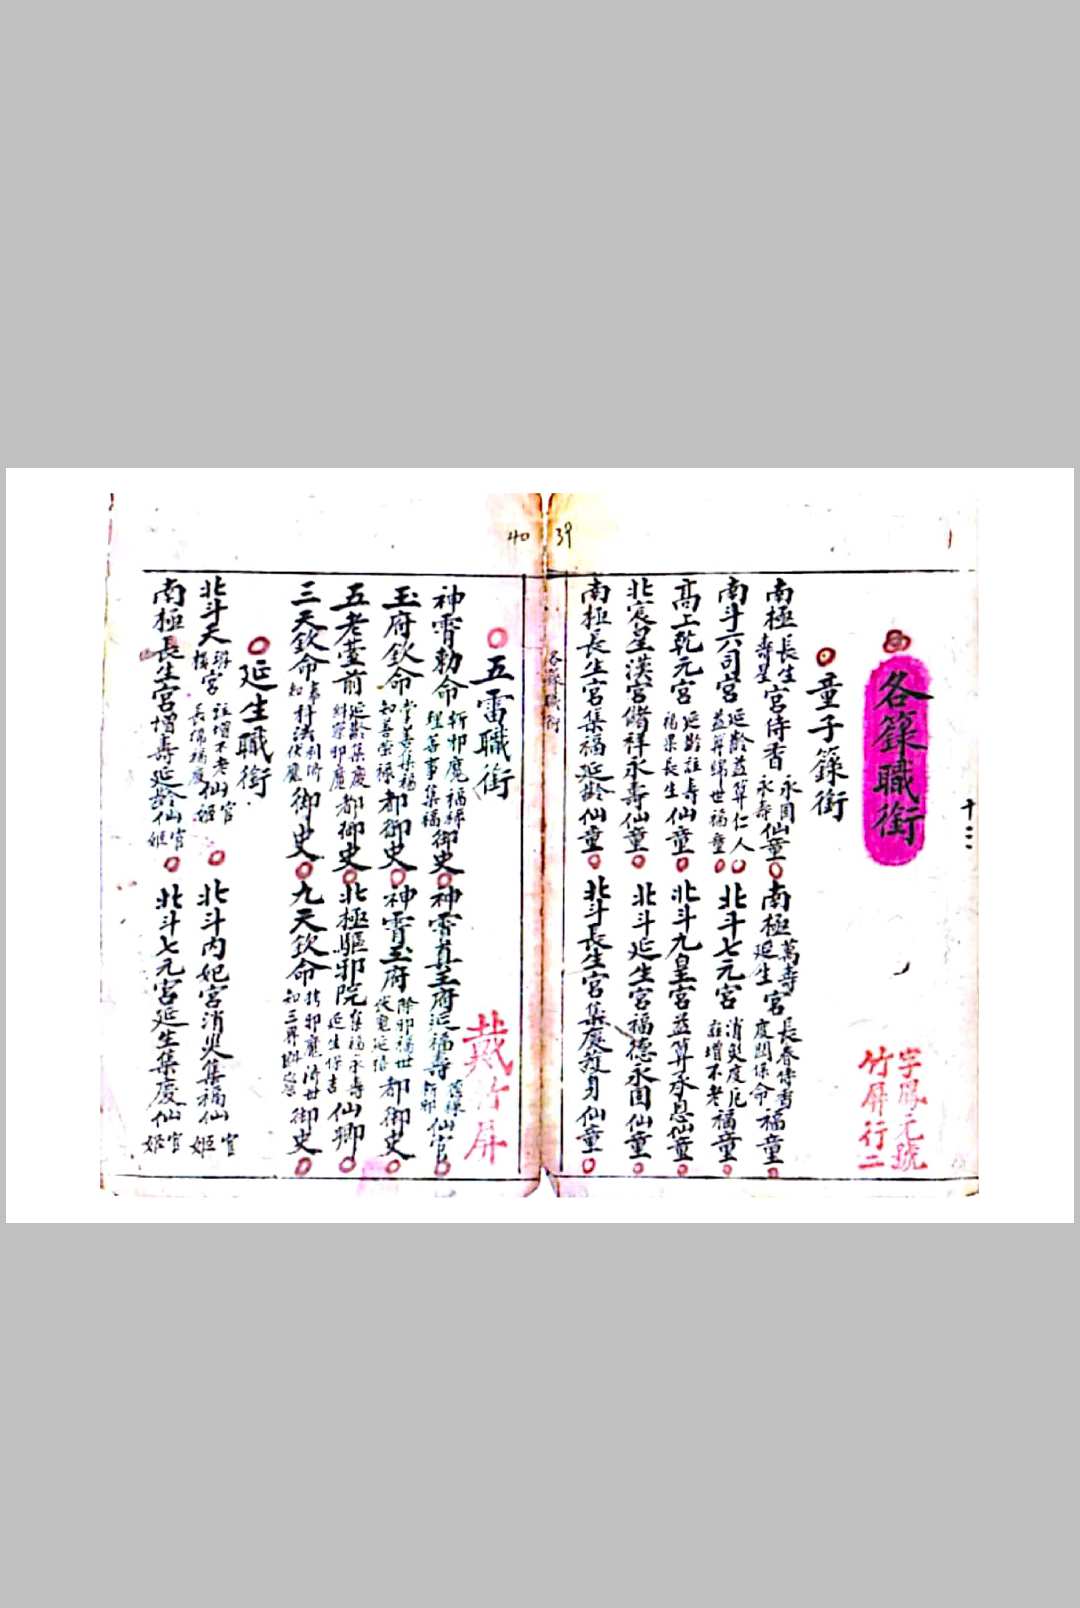 39
十三
各籙職銜
字鳳元號
竹屏行二
童子籙銜
南極長生壽星宮侍香永固永壽仙童
南極萬壽延生宮長春侍香度關保命福童
南斗六司宮延齡益算仁人益算歸世福童
北斗七元宮消災度厄註增不老福童
高上乾元宮延齡註壽福果長生仙童
北斗九皇宮益算承恩仙童
北宸星漢宮儲祥永壽仙童
北斗延生宮福德永固仙童
南極長生宮集福延齡仙童
北斗長生宮集慶護身仙童
各籙職銜
40
五雷職銜
戴竹屏
神霄勅命斬邪魔福祿理吾事集福御史
神霄真王府延福壽仙官
玉府欽命掌善集福知善崇祿都御史
神霄玉府除邪福世伏魔延禧都御史
五老臺前延齡集慶糾察邪魔都御史
北極驅邪院集福永壽延生保吉仙卿
三天欽命知法伏魔御史
九天欽命御史
延生職銜
北斗天宮註增不老仙官姬
北斗內妃宮消災集福仙官姬
南極長生宮增壽延齡仙官姬
北斗七元宮延生集慶仙官姬